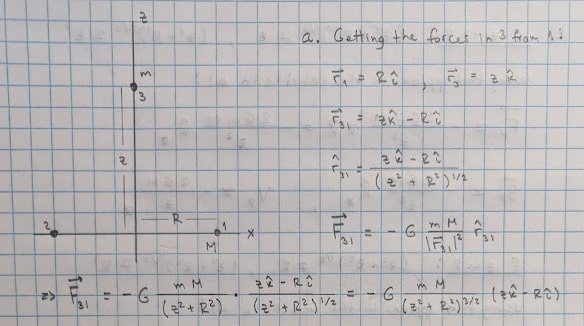 z
a. Getting the forces in 3 from 1:
m
3
r⃗₁ = R î , r⃗₃ = z k̂
r⃗₃₁ = z k̂ - R î
z
r̂₃₁ = (z k̂ - R î) / (z² + R²)^1/2
R
2 1 x
M
F⃗₃₁ = - G (m M / |r⃗₃₁|²) r̂₃₁
=> F⃗₃₁ = - G (m M / (z² + R²)) · (z k̂ - R î) / (z² + R²)^1/2 = - G (m M / (z² + R²)^3/2) (z k̂ - R î)